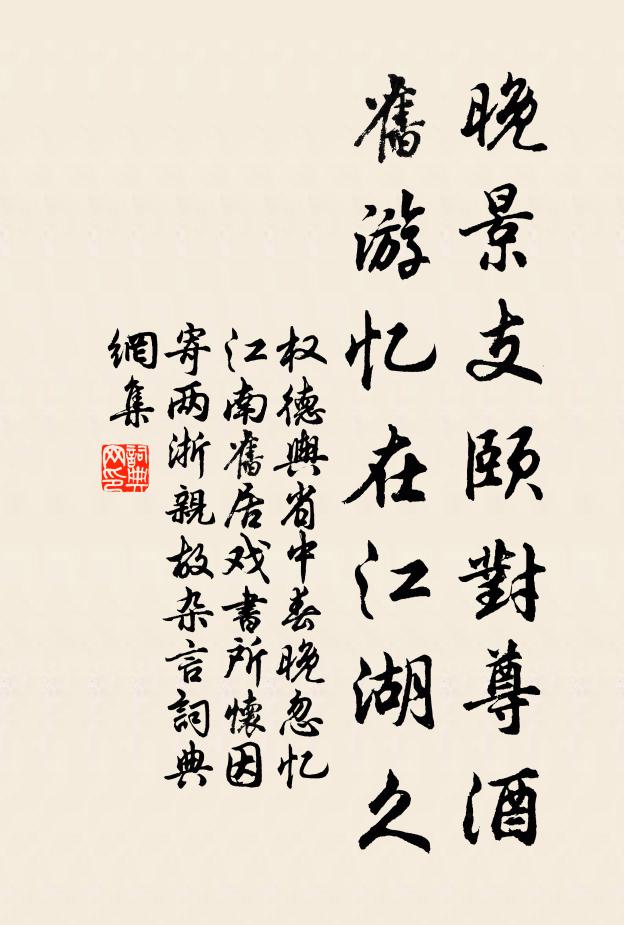 晚景支頤對尊酒
舊游忆在江湖久
权德輿省中春晚忽忆
江南舊居戏書所懷因
寄两浙親故杂言詞典
網集
詞典
网印